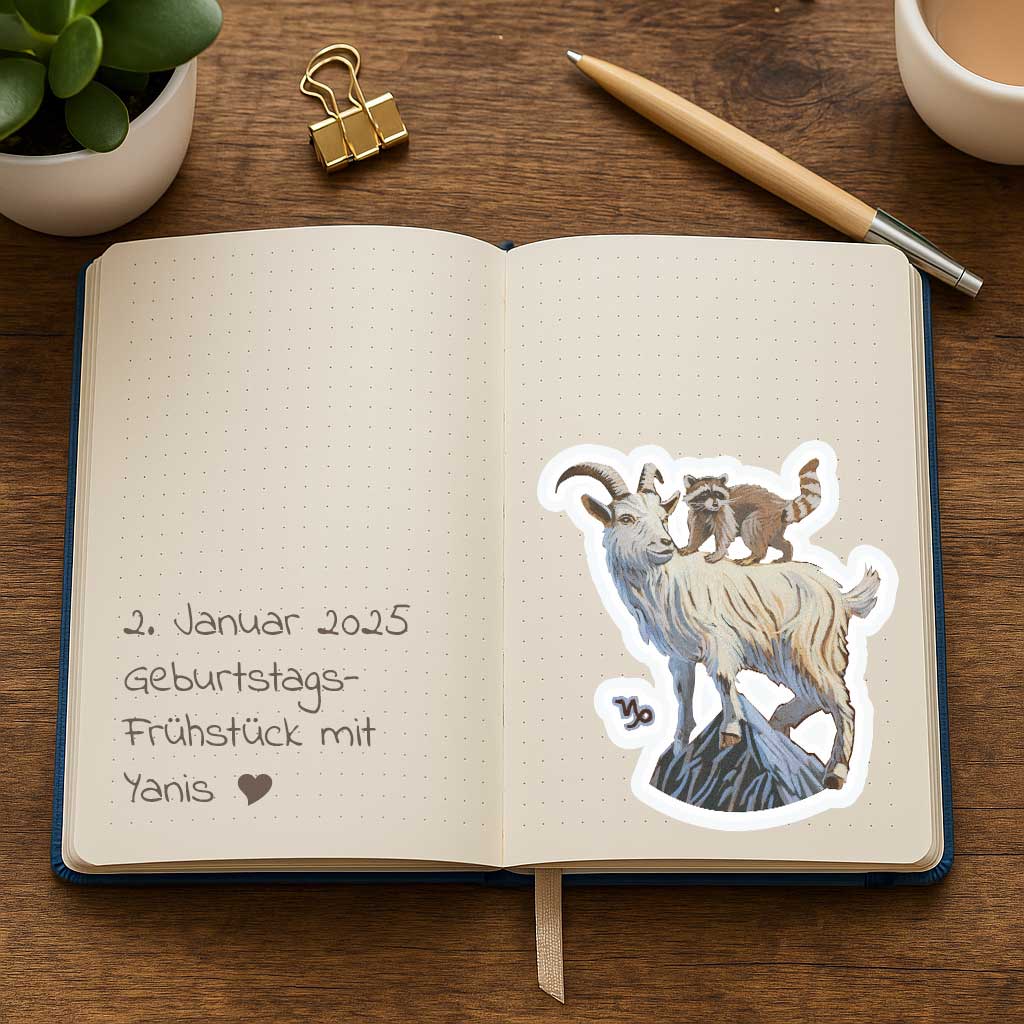 2. Januar 2025
Geburtstags-
Frühstück mit
Yanis ♥
♑